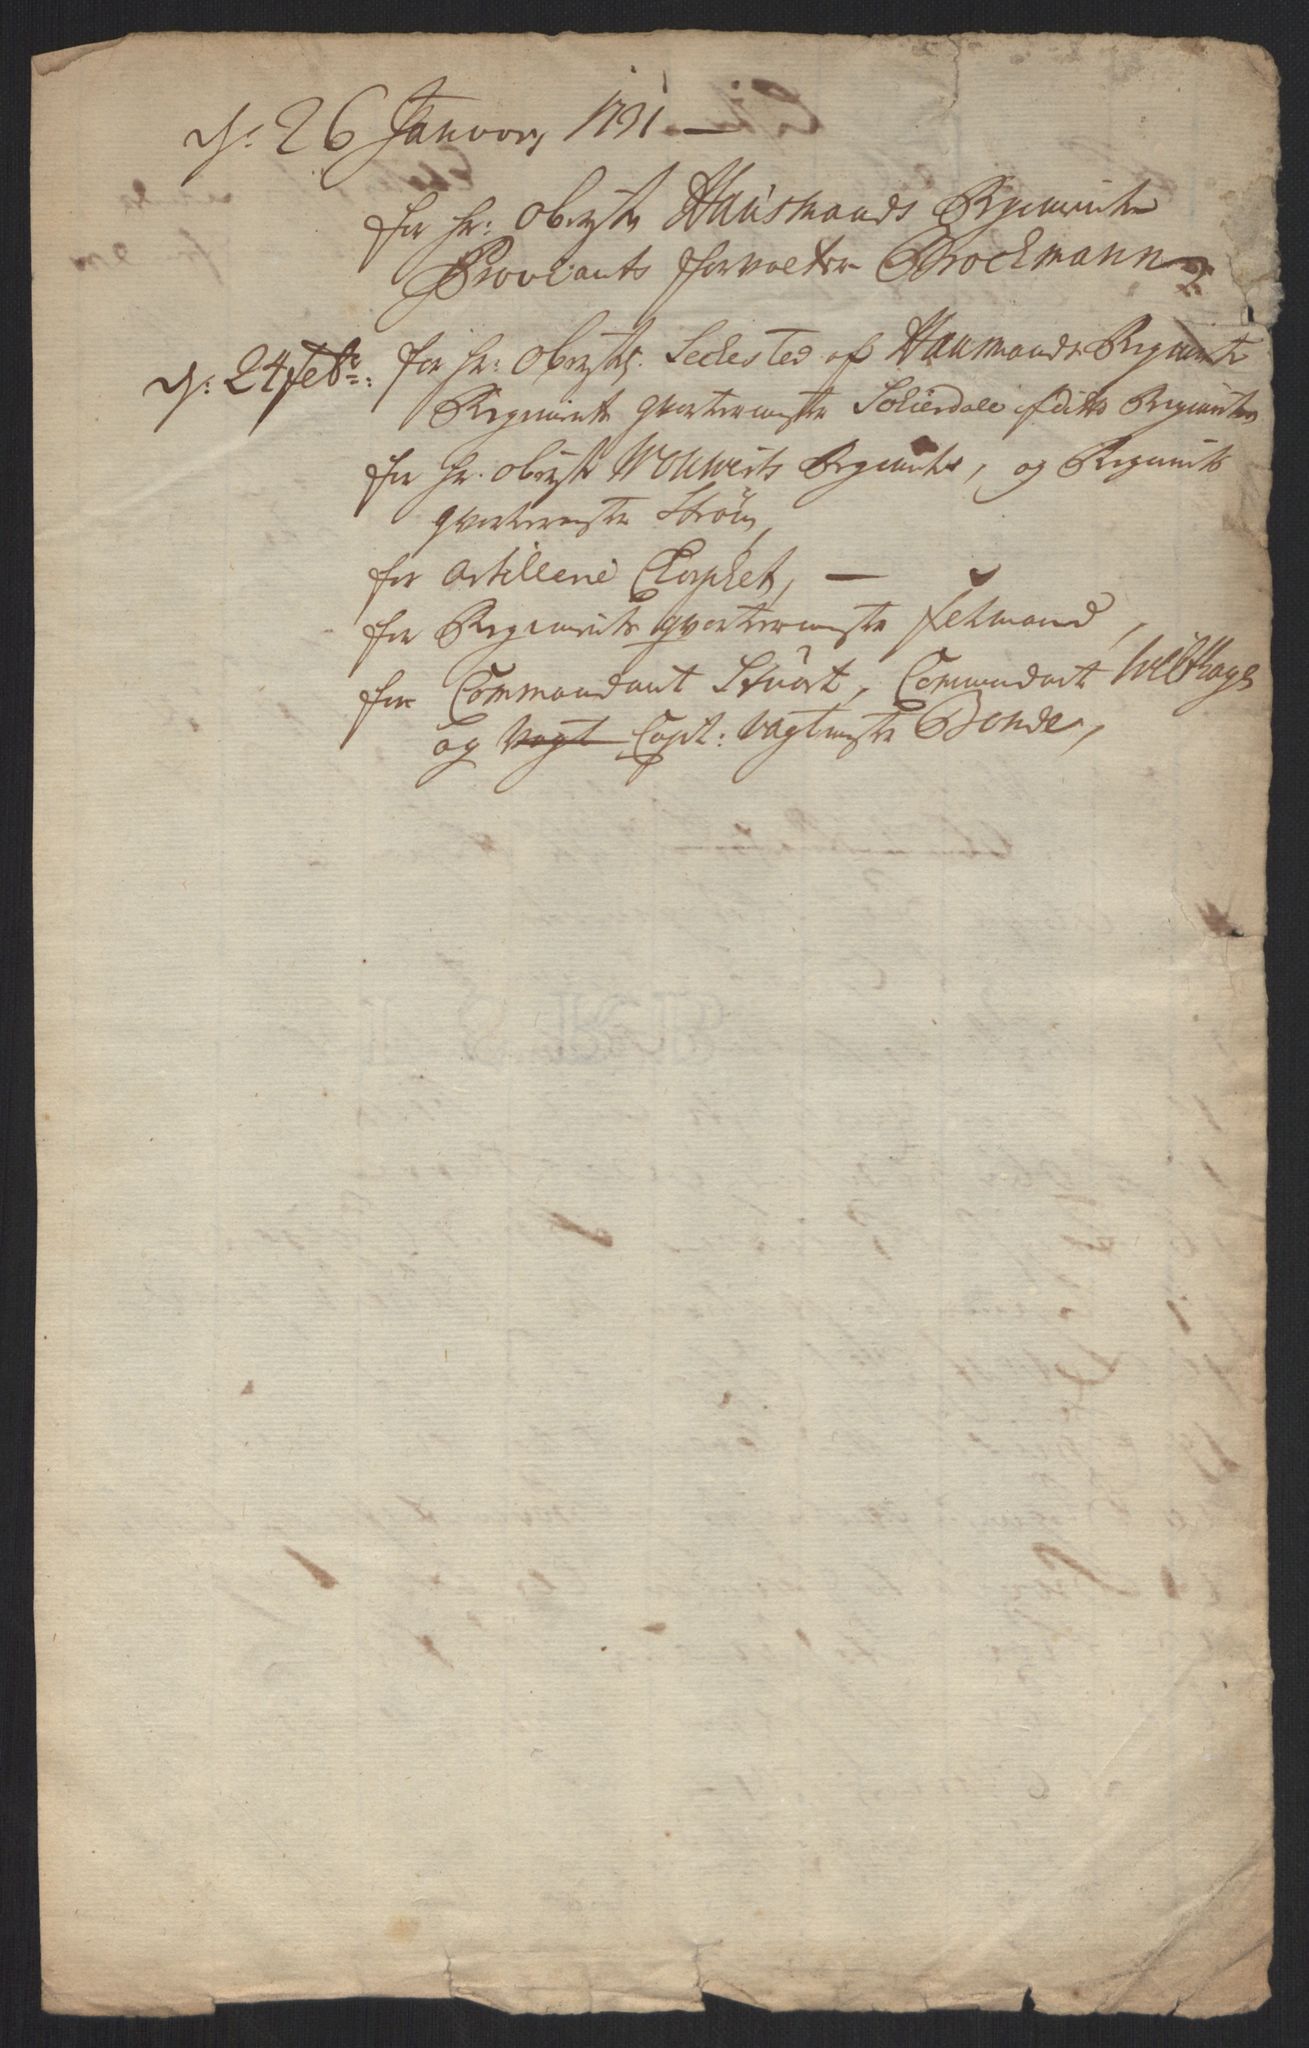 d: 26 Januarj 1791 —
for Hr: Oberste Hausmands Regimente
Proviants Forvalter Brockmann
d: 24 Febr: for Hr: Oberste Seckested af Hausmands Regiment
Regiments Qvarteermester Solierdale af ditto Regimente
for Hr. Oberste Regimente, og Regiments
qvarteermester Strøm,
for Artillerie Corpset, —
for Regiments qvarteermester Felmand,
for Commandant Stuart, Commandant
og Vagt Capt: Vagtmester Bonde,